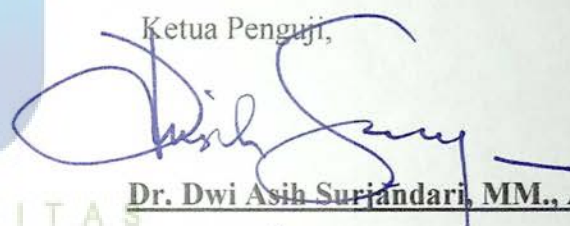 Ketua Penguji,
Dr. Dwi Asih Surjandari, MM., A
I T A S